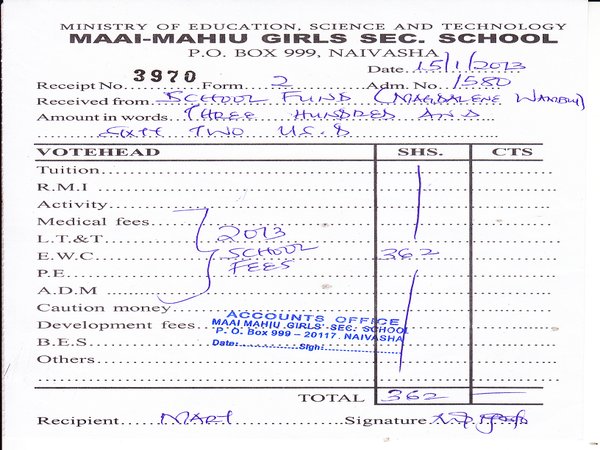 MINISTRY OF EDUCATION, SCIENCE AND TECHNOLOGY
MAAI-MAHIU GIRLS SEC. SCHOOL
P.O. BOX 999, NAIVASHA
Date 15/1/2013
Receipt No 3970 Form 2 Adm. No 1580
Received from SCHOOL FUND (MAGDALENE WAMBUI)
Amount in words THREE HUNDRED AND
SIXTY TWO U.S. $
VOTEHEAD SHS. CTS
Tuition
R.M.I
Activity
Medical fees
L.T.&T 2013
E.W.C SCHOOL 362
P.E FEES
A.D.M
Caution money
ACCOUNTS OFFICE
Development fees MAAI MAHIU GIRLS' SEC. SCHOOL
P. O. Box 999 - 20117 NAIVASHA
B.E.S Date: Sign:
Others
TOTAL 362
Recipient MARY Signature